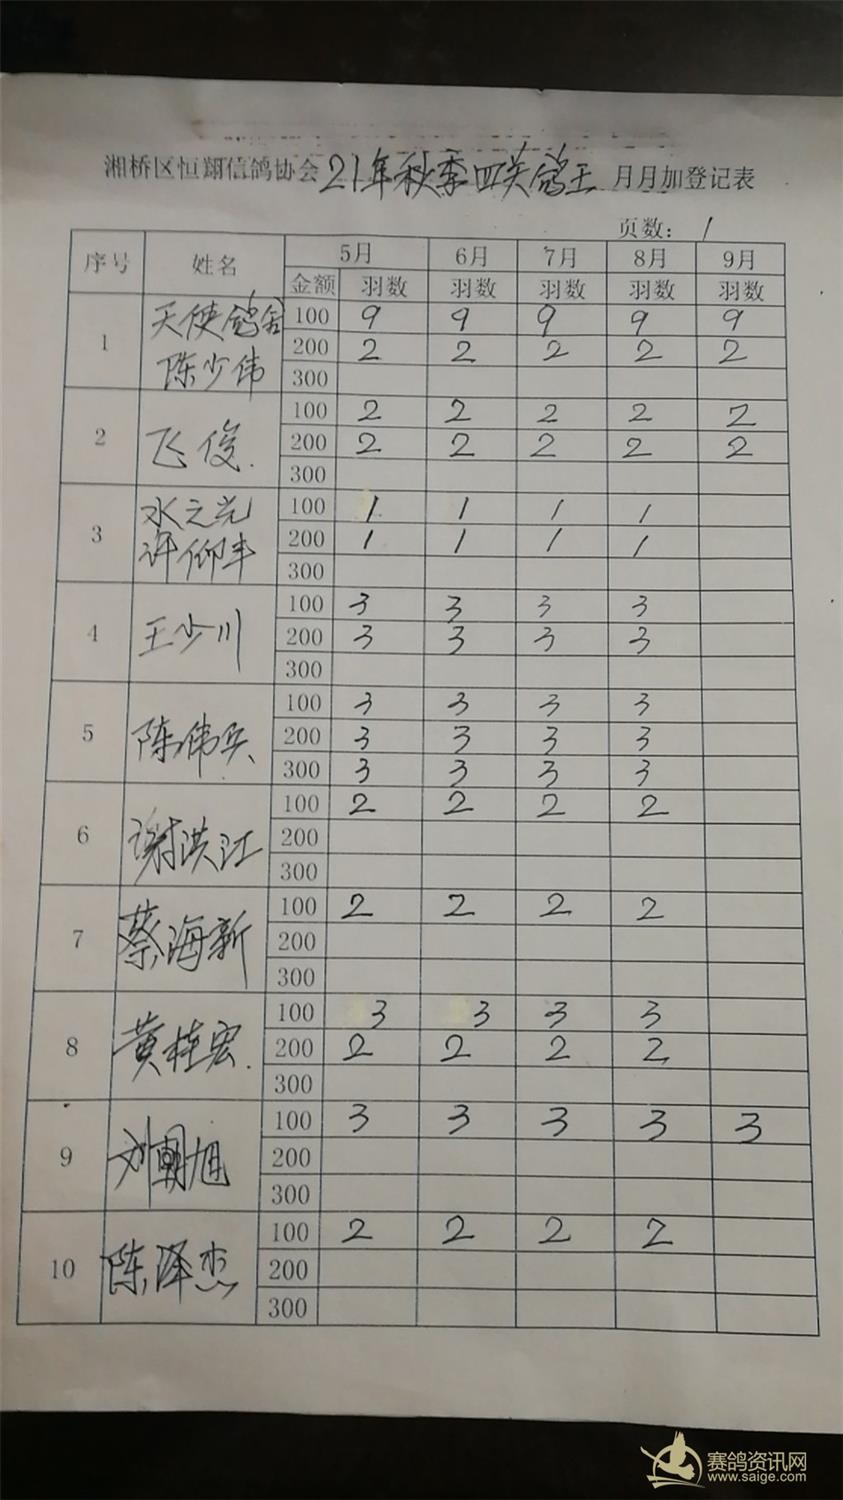 湘桥区恒翔信鸽协会 21年秋季四关鸽王 月月加登记表
页数: 1
序号 姓名 5月 6月 7月 8月 9月
金额 羽数 羽数 羽数 羽数 羽数
1 天使鸽舍 陈少伟 100 9 9 9 9 9
200 2 2 2 2 2
300
2 飞俊. 100 2 2 2 2 2
200 2 2 2 2 2
300
3 水之光 许仰丰 100 1 1 1 1
200 1 1 1 1
300
4 王少川 100 3 3 3 3
200 3 3 3 3
300
5 陈伟兵 100 3 3 3 3
200 3 3 3 3
300 3 3 3 3
6 谢洪江 100 2 2 2 2
200
300
7 蔡海新 100 2 2 2 2
200
300
8 黄桂宏. 100 3 3 3 3
200 2 2 2 2
300
9 刘朝旭 100 3 3 3 3 3
200
300
10 陈泽杰 100 2 2 2 2
200
300
赛鸽资讯网
www.saige.com